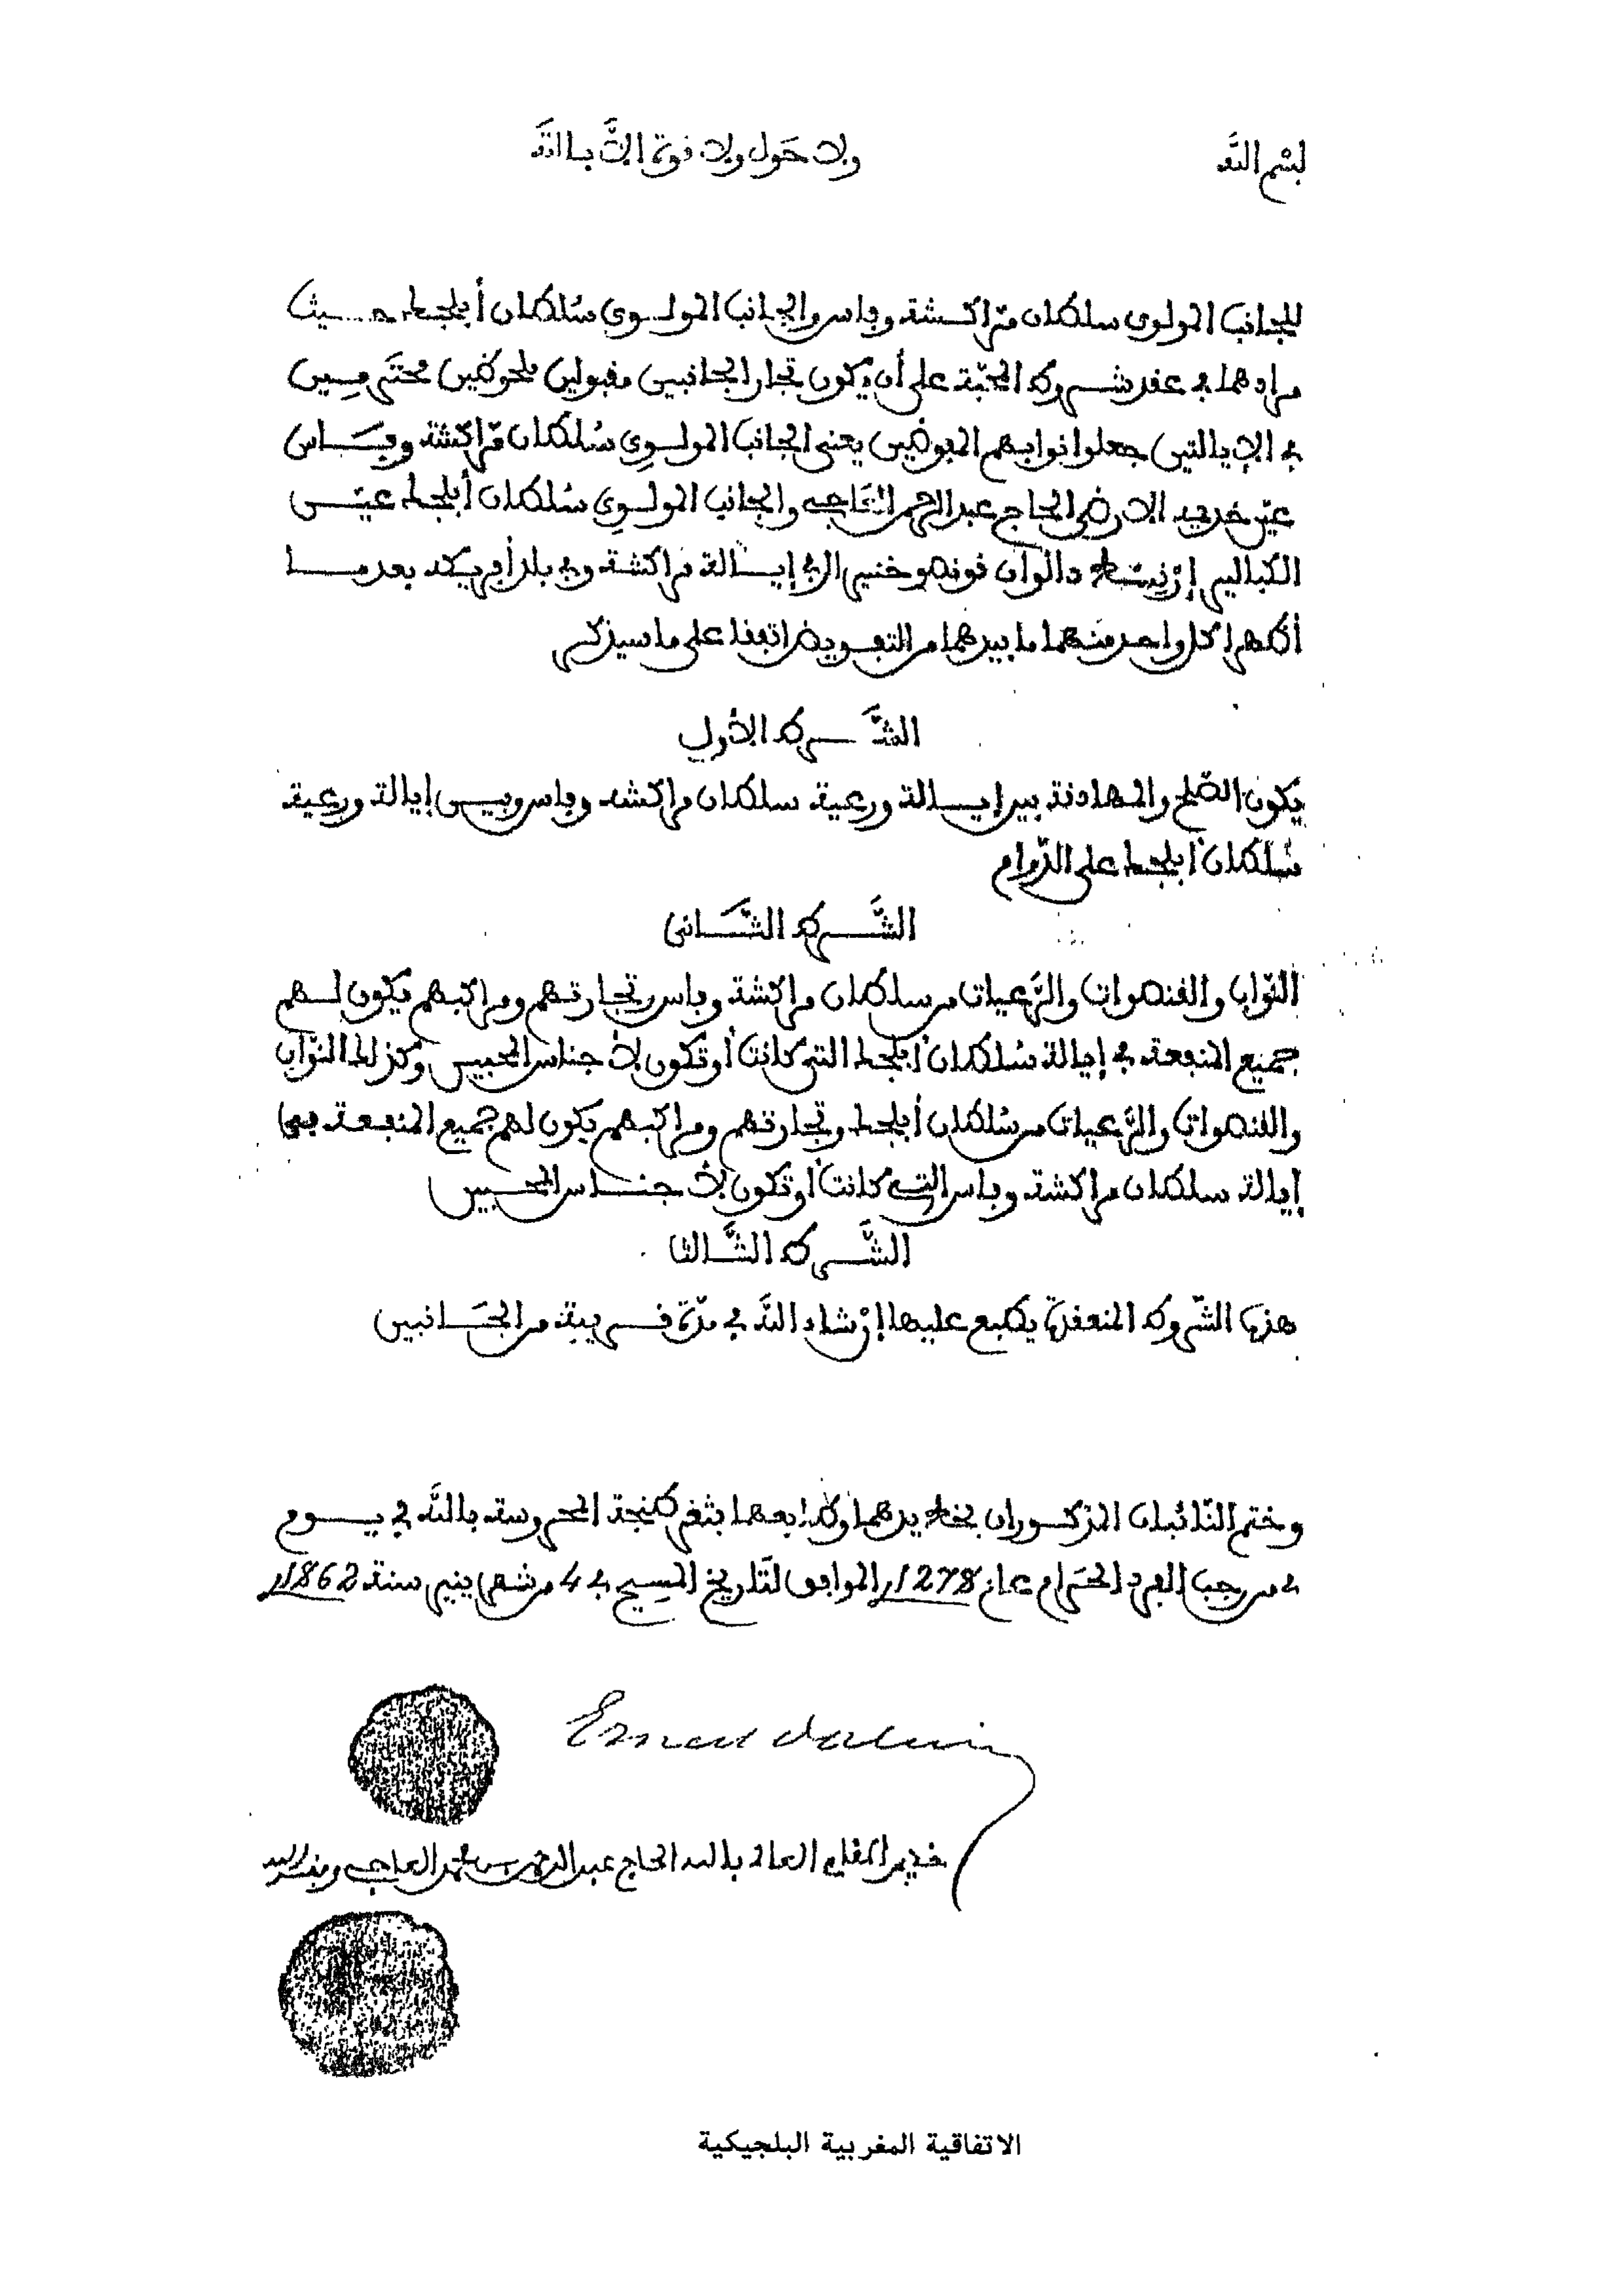 بسم الله ولا حول ولا قوة إلا بالله
للجانب المولوي سلطان مراكشة وفاس والجانب المولوي سلطان أبلجك حيث
مرادهما في عقد شروط المحبّة على أن يكون تجار الجانبين مقبولين ملحوظين محترمين
في الإيالتين جعلوا نوابهم المفوضين يعني الجانب المولوي سلطان مراكشة وفاس
عين خديمه الارضى الحاج عبد الرحمن العاجي والجانب المولوي سلطان أبلجك عين
الكبالير إرنيسط دالوان قونصو خنيرال في إيالة مراكشة وفي بلد أفريكة بعد ما
أظهرا كل واحد منهما ما بيدهما من التفويض اتفقا على ما سيذكر
الشّرط الأول
يكون الصّلح والمهادنة بين إيالة ورعية سلطان مراكشة وفاس وبين إيالة ورعية
سلطان أبلجك على الدّوام
الشّرط الثّاني
النّواب والقنصوات والرّعيات من سلطان مراكشة وفاس وتجارتهم ومراكبهم يكون لهم
جميع المنفعة في إيالة سلطان أبلجك التي كانت أو تكون لأجناس المحبين وكذلك النّواب
والقنصوات والرّعيات من سلطان أبلجك وتجارتهم ومراكبهم يكون لهم جميع المنفعة في
إيالة سلطان مراكشة وفاس التي كانت أو تكون لأجناس المحبين
الشّرط الثّالث
هذه الشّروط المنعقدة يطبع عليها إن شاء الله في مدّة قريبة من الجانبين
وختم النّائبان المذكوران بخط يدهما وطابعها بثغر طنجة المحروسة بالله في يوم
من رجب الفرد الحرام عام 1278 الموافق لتاريخ المسيح في 4 من شهر ينير سنة 1862
Ernest Daluin
خديم المقام العالي بالله الحاج عبد الرحمن بن محمد العاجي وفقه الله
الاتفاقية المغربية البلجيكية